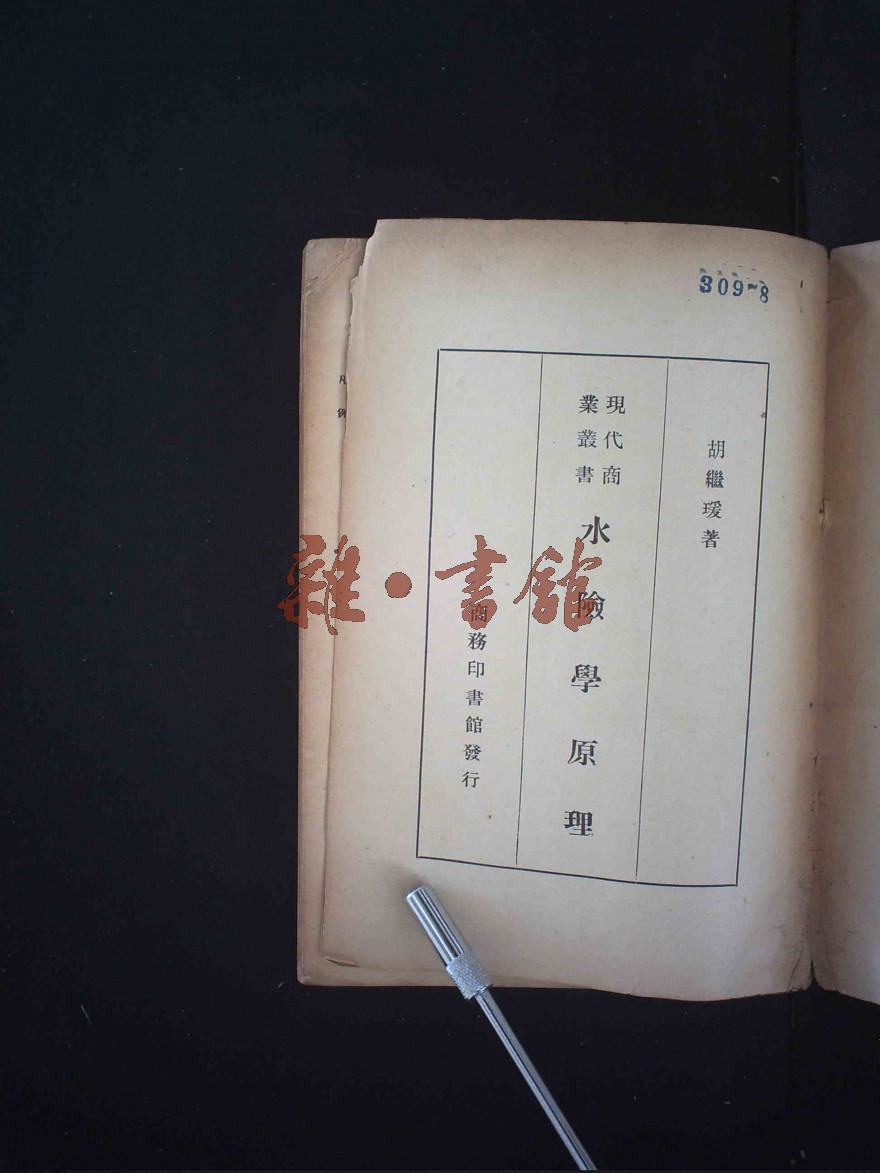 309-8
胡繼瑗著
現代商
業叢書
水險學原理
商務印書館發行
凡例
雜·書館